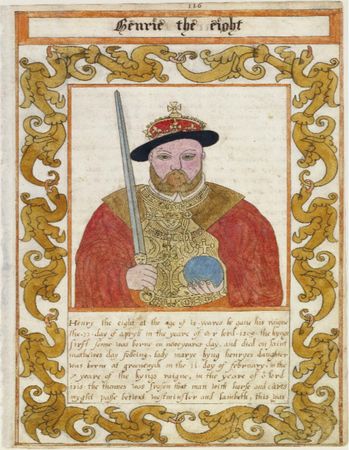 116
Henrie the eight
Henry the eight at the age of 18 yeares be gane his raigne
the 22 day of aprell in the yeare of or lord 1509 the kyngs
first sonne was borne on neweyeares day, and died on saint
mathewes day folloing. lady marye kyng henryes daughter
was borne at greenwych in the 11 day of february in the
7 yeare of the kyng raigne, in the yeare of lord
the thames was frosen that man with horse and carts
myght passe betwext westminster and lambeth, this was